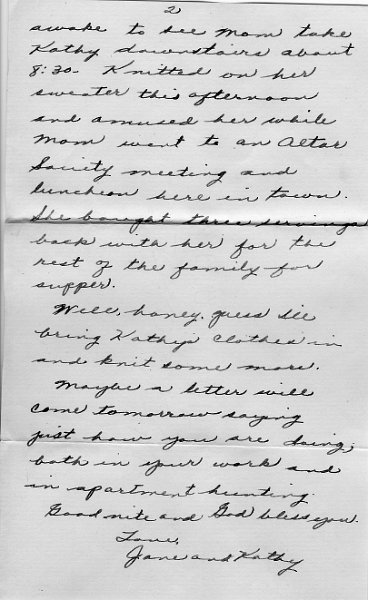 2
awake to see Mom take
Kathy downstairs about
8:30. Knitted on her
sweater this afternoon
and amused her while
Mom went to an Altar
Society meeting and
luncheon here in town.
She bought three servings
back with her for the
rest of the family for
supper.
Well, honey, guess I'll
bring Kathy's clothes in
and knit some more.
Maybe a letter will
come tomorrow saying
just how you are doing,
both in your work and
in apartment hunting.
Good nite and God bless you.
Love,
Jane and Kathy